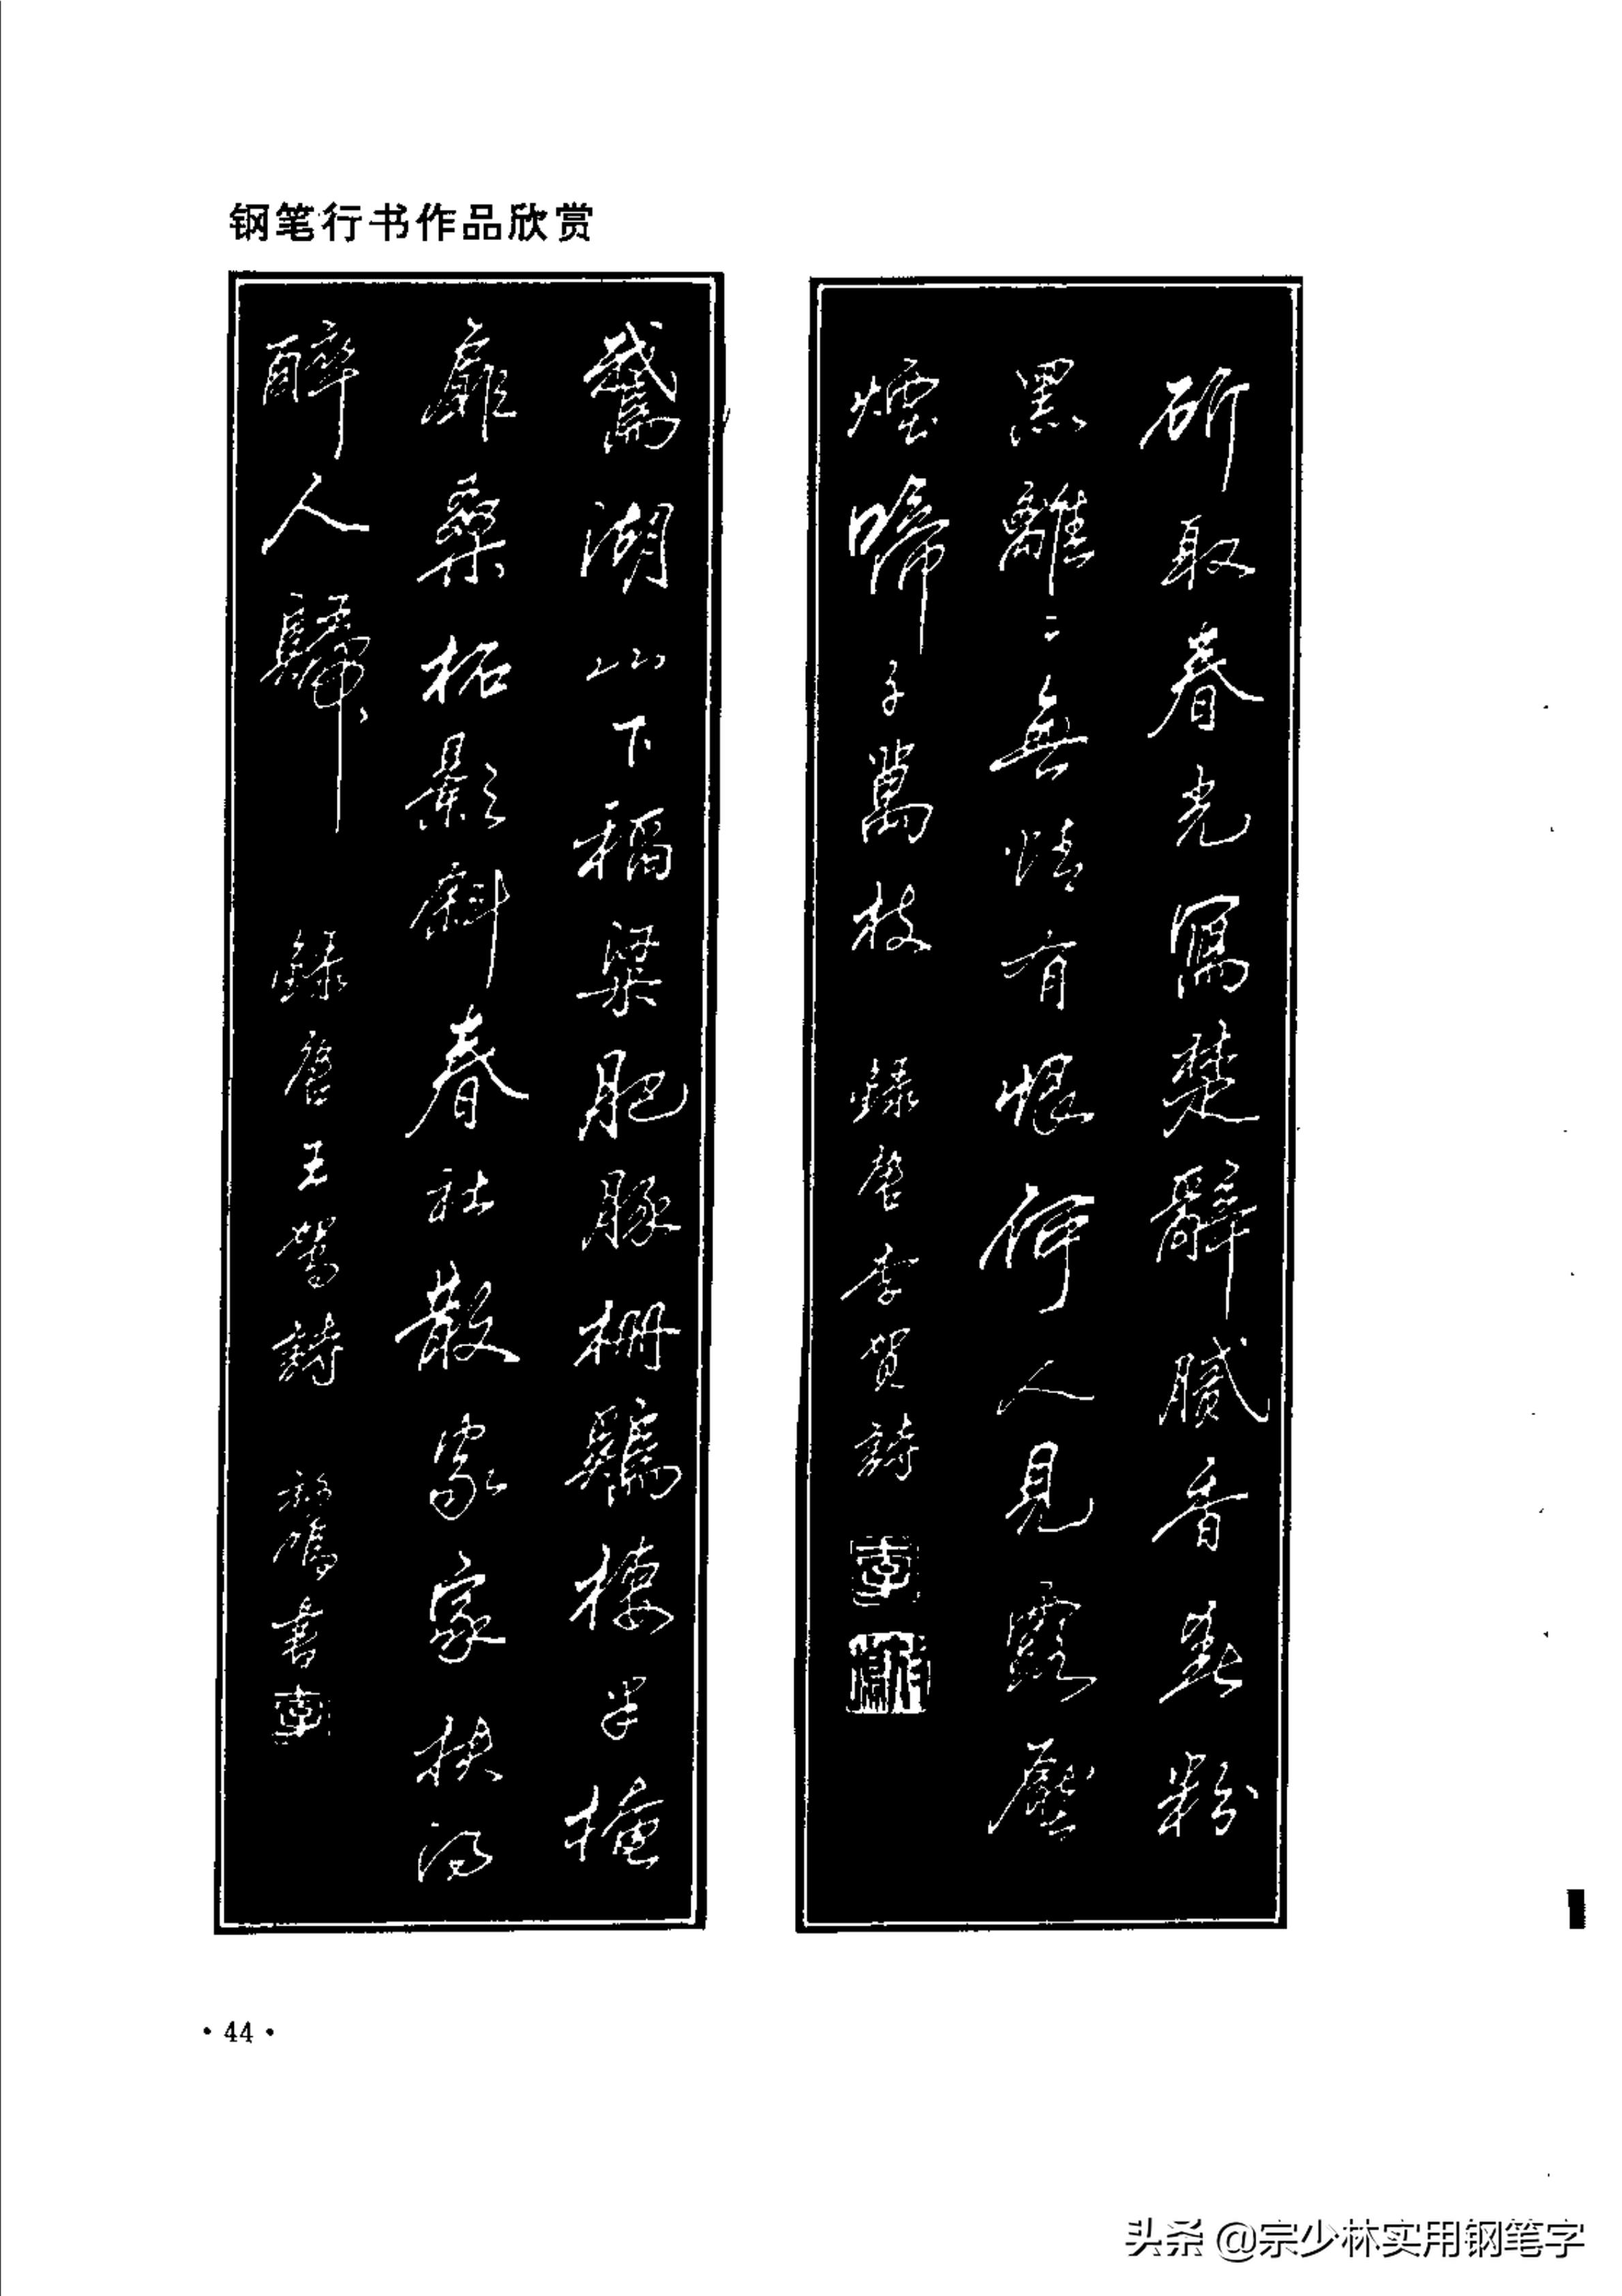 钢笔行书作品欣赏
斫取春光寫楚辭膩香春粉
黑離〻無情有恨何人見露壓
煙啼千萬枝 錄唐李賀詩
鵞湖山下稻粱肥豚柵鷄棲半掩
扉桑柘影斜春社散家家扶得
醉人歸 錄唐王駕詩 書
·44·
头条 @宗少林实用钢笔字